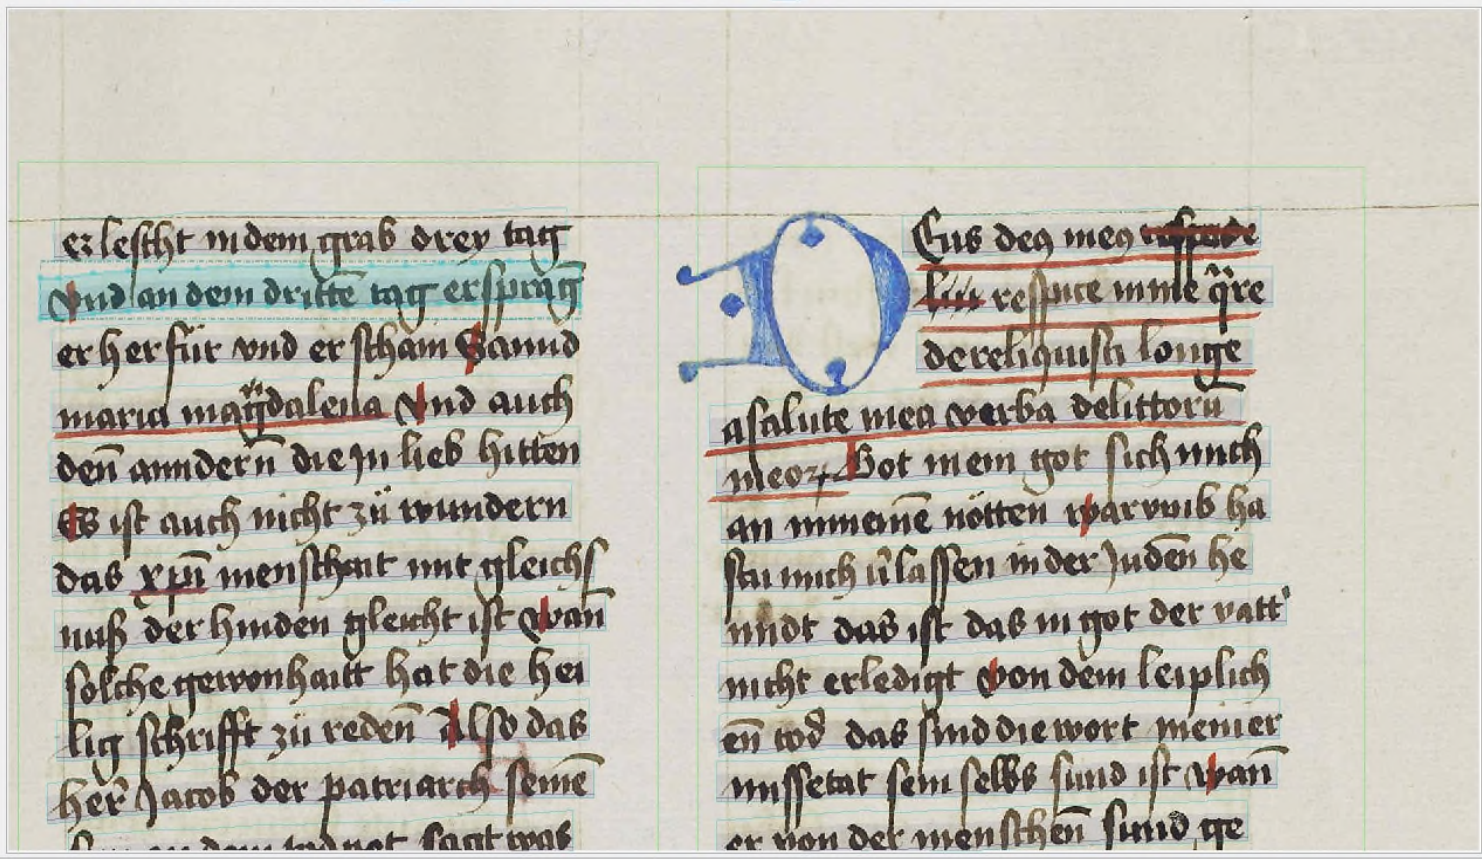 erlescht in dem grab drey tag
Vnd an dem dritte̅ tag ersprāg
er herfür vnd erschain Sannd
maria magdalena Vnd auch
den̅ anndern̅ die jn lieb hitten
Es ist auch nicht zü wundern
das xp̅i menschait mit gleichs
nuß der hinden gleicht ist Wan̅
solche gewonhaitt hat die hei
lig schrifft zü reden̅ Also das
her̅ Jacob der patriarch seine̅
sagt was
Deus deꝯ meꝯ
respice in me q̅re
dereliquisti longe
a salute mea verba delittoru̅
meoꝝ Got mein got sich mich
an in meine̅ nötten warvmb ha
stu mich v̅lassen in der Juden̅ he
nndt das ist das in got der vatt'
nicht erledigt von dem leiplich
en̅ tod das sind die wort meiner
missetat sein selbs sünd ist Wan̅
er von der menschen̅ sünd ge